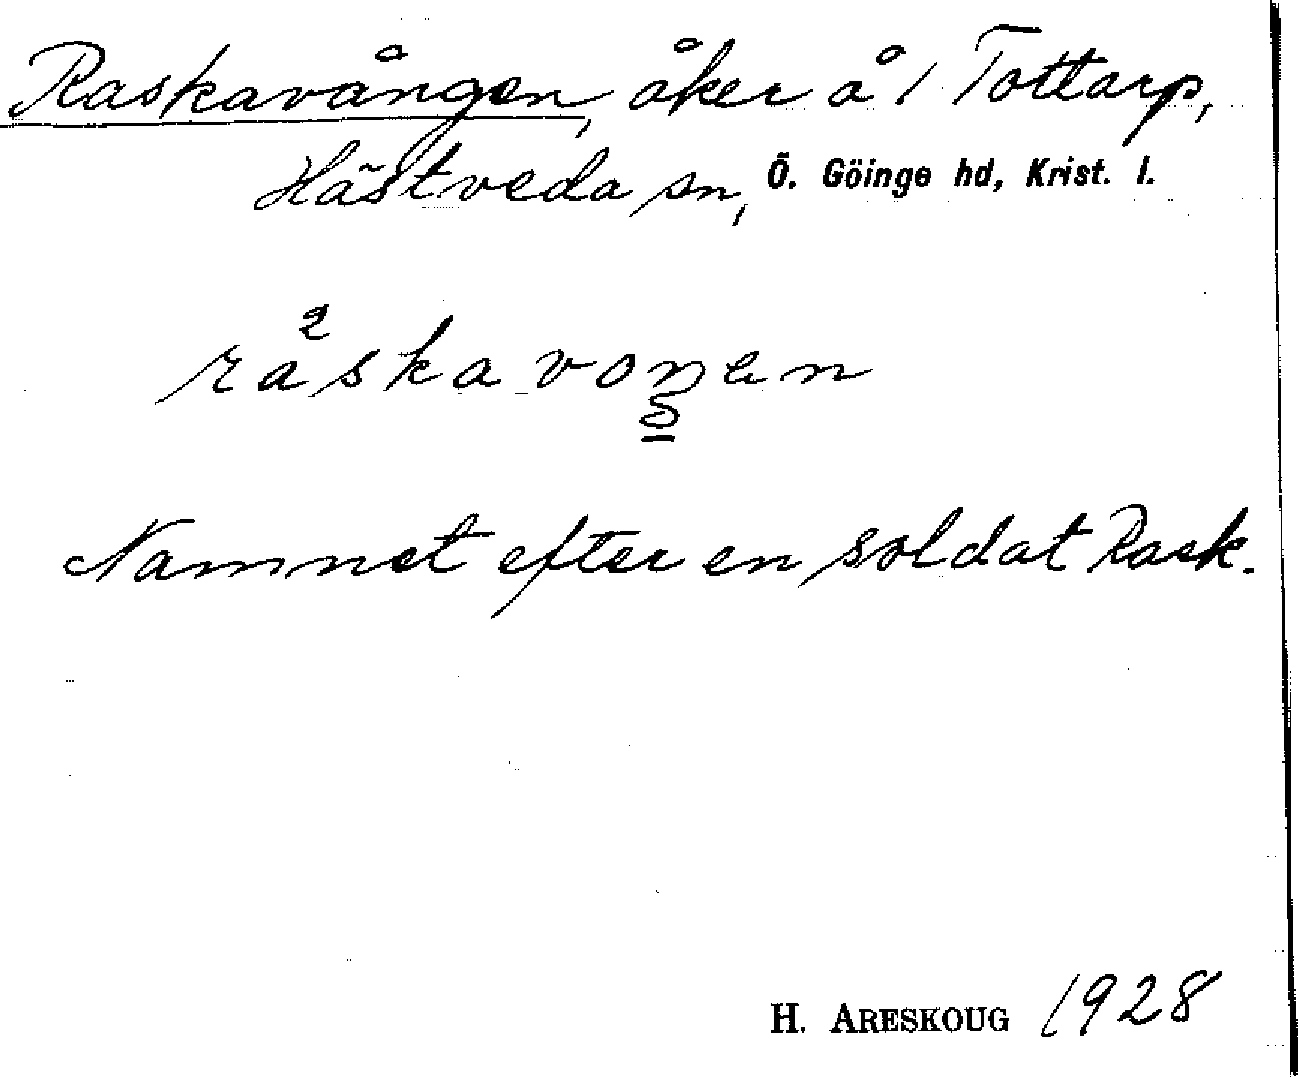 Raskavången, åker å 1 Tottarp,
Hästveda sn, Ö. Göinge hd, Krist. l.
råskavoŋen
Namnet efter en soldat Rask.
H. ARESKOUG 1928